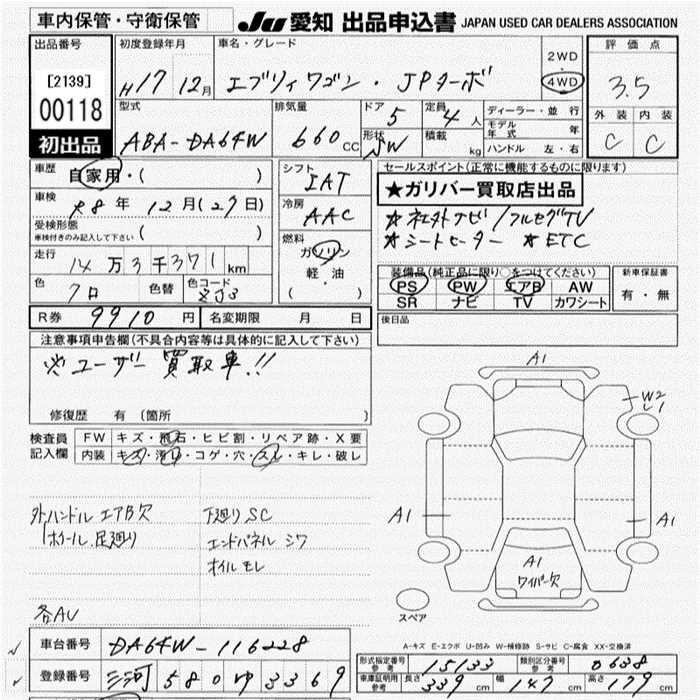 車内保管・守衛保管
JU 愛知 出品申込書 JAPAN USED CAR DEALERS ASSOCIATION
出品番号
[2139]
00118
初出品
初度登録年月 車名・グレード
H17 12月 エブリィワゴン・JPターボ
2WD
4WD
評価点
3.5
外装 内装
C C
型式 排気量 ドア 5 定員 4人
ABA-DA64W 660cc
形状 SW 積載 kg
ディーラー・並行
モデル年式 年
ハンドル 左・右
車歴 自家用・( )
車検 R8年 12月(27日)
受検形態
車検付きのみ記入して下さい ( )
走行 14万3千371km
色 クロ 色替 色コード ZJ3
シフト
IAT
冷房
AAC
燃料
ガソリン
軽・油
( )
セールスポイント(正常に機能するものに限ります)
★ガリバー買取店出品
★社外ナビ/フルセグTV
★シートヒーター ★ETC
装備品(純正品に限り○をつけてください)
PS PW エアB AW
SR ナビ TV カワシート
新車保証書
有・無
R券 9910円 名変期限 月 日
後日品
注意事項申告欄(不具合内容等は具体的に記入して下さい)
※ユーザー買取車!!
修復歴 有 (箇所 )
検査員記入欄
FW キズ・飛石・ヒビ割・リペア跡・X要
内装 キズ・汚れ・コゲ・穴・スレ・キレ・破レ
外ハンドル エアB欠 下廻りSC
ホイール.足廻り エンドパネル シワ
オイルモレ
各AU
A1
W2
A1
A1
A1
ワイパー欠
スペア
A-キズ E-エクボ U-凹み W-補修跡 S-サビ C-腐食 XX-交換済
車台番号 DA64W-116228
登録番号 三河 580 ゆ 3369
形式指定番号 参考 15133 類別区分番号 参考 0638
車庫証明用 参考 長さ 339cm 幅 147cm 高さ 179cm